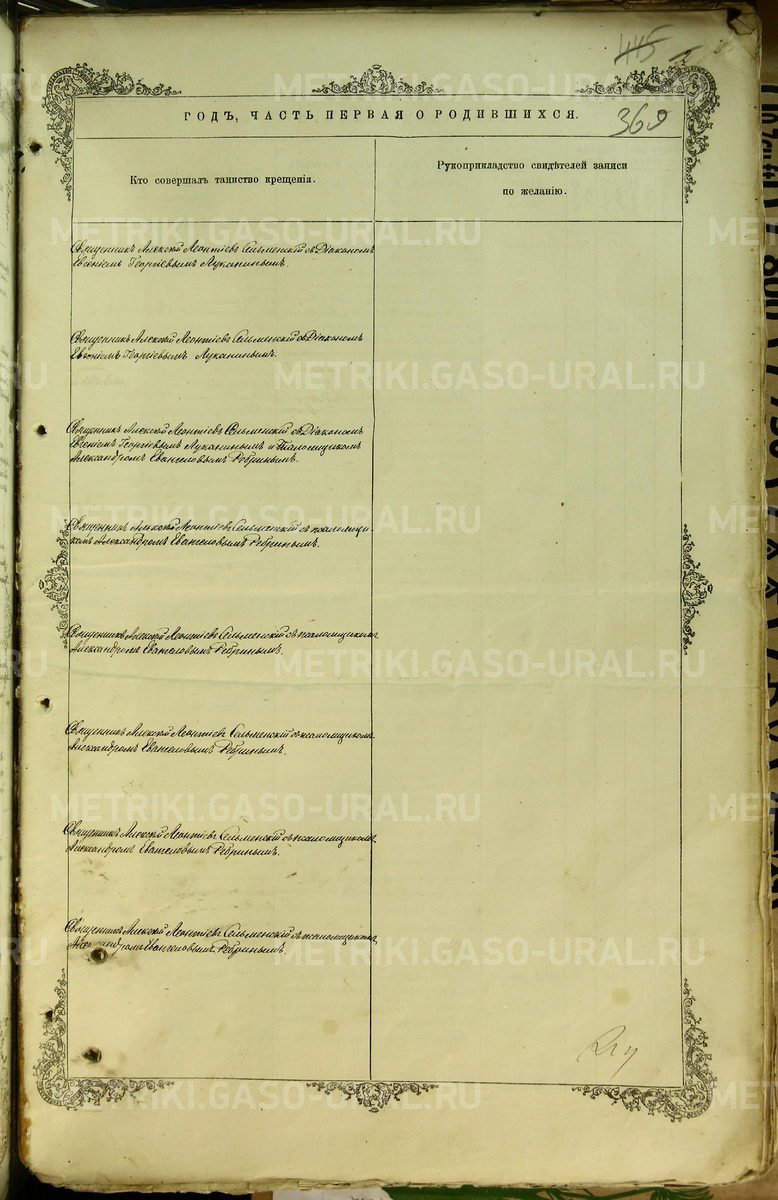 445
369
ГОДЪ, ЧАСТЬ ПЕРВАЯ О РОДИВШИХСЯ.
Кто совершалъ таинство крещенія.
Рукоприкладство свидѣтелей записи
по желанію.
Священникъ Алексѣй Леонтіевъ Сельменскій съ Діакономъ
Евгеніемъ Георгіевымъ Луканинымъ.
Священникъ Алексѣй Леонтіевъ Сельменскій съ Діакономъ
Евгеніемъ Георгіевымъ Луканинымъ.
Священникъ Алексѣй Леонтіевъ Сельменскій съ Діакономъ
Евгеніемъ Георгіевымъ Луканинымъ и Псаломщикомъ
Александромъ Евангеловымъ Ребринымъ.
Священникъ Алексѣй Леонтіевъ Сельменскій съ псаломщи-
комъ Александромъ Евангеловымъ Ребринымъ.
Священникъ Алексѣй Леонтіевъ Сельменскій съ псаломщикомъ
Александромъ Евангеловымъ Ребринымъ.
Священникъ Алексѣй Леонтіевъ Сельменскій съ псаломщикомъ
Александромъ Евангеловымъ Ребринымъ.
Священникъ Алексѣй Леонтіевъ Сельменскій съ псаломщикомъ
Александромъ Евангеловымъ Ребринымъ.
Священникъ Алексѣй Леонтіевъ Сельменскій съ псаломщикомъ
Александромъ Евангеловымъ Ребринымъ.
METRIKI.GASO-URAL.RU